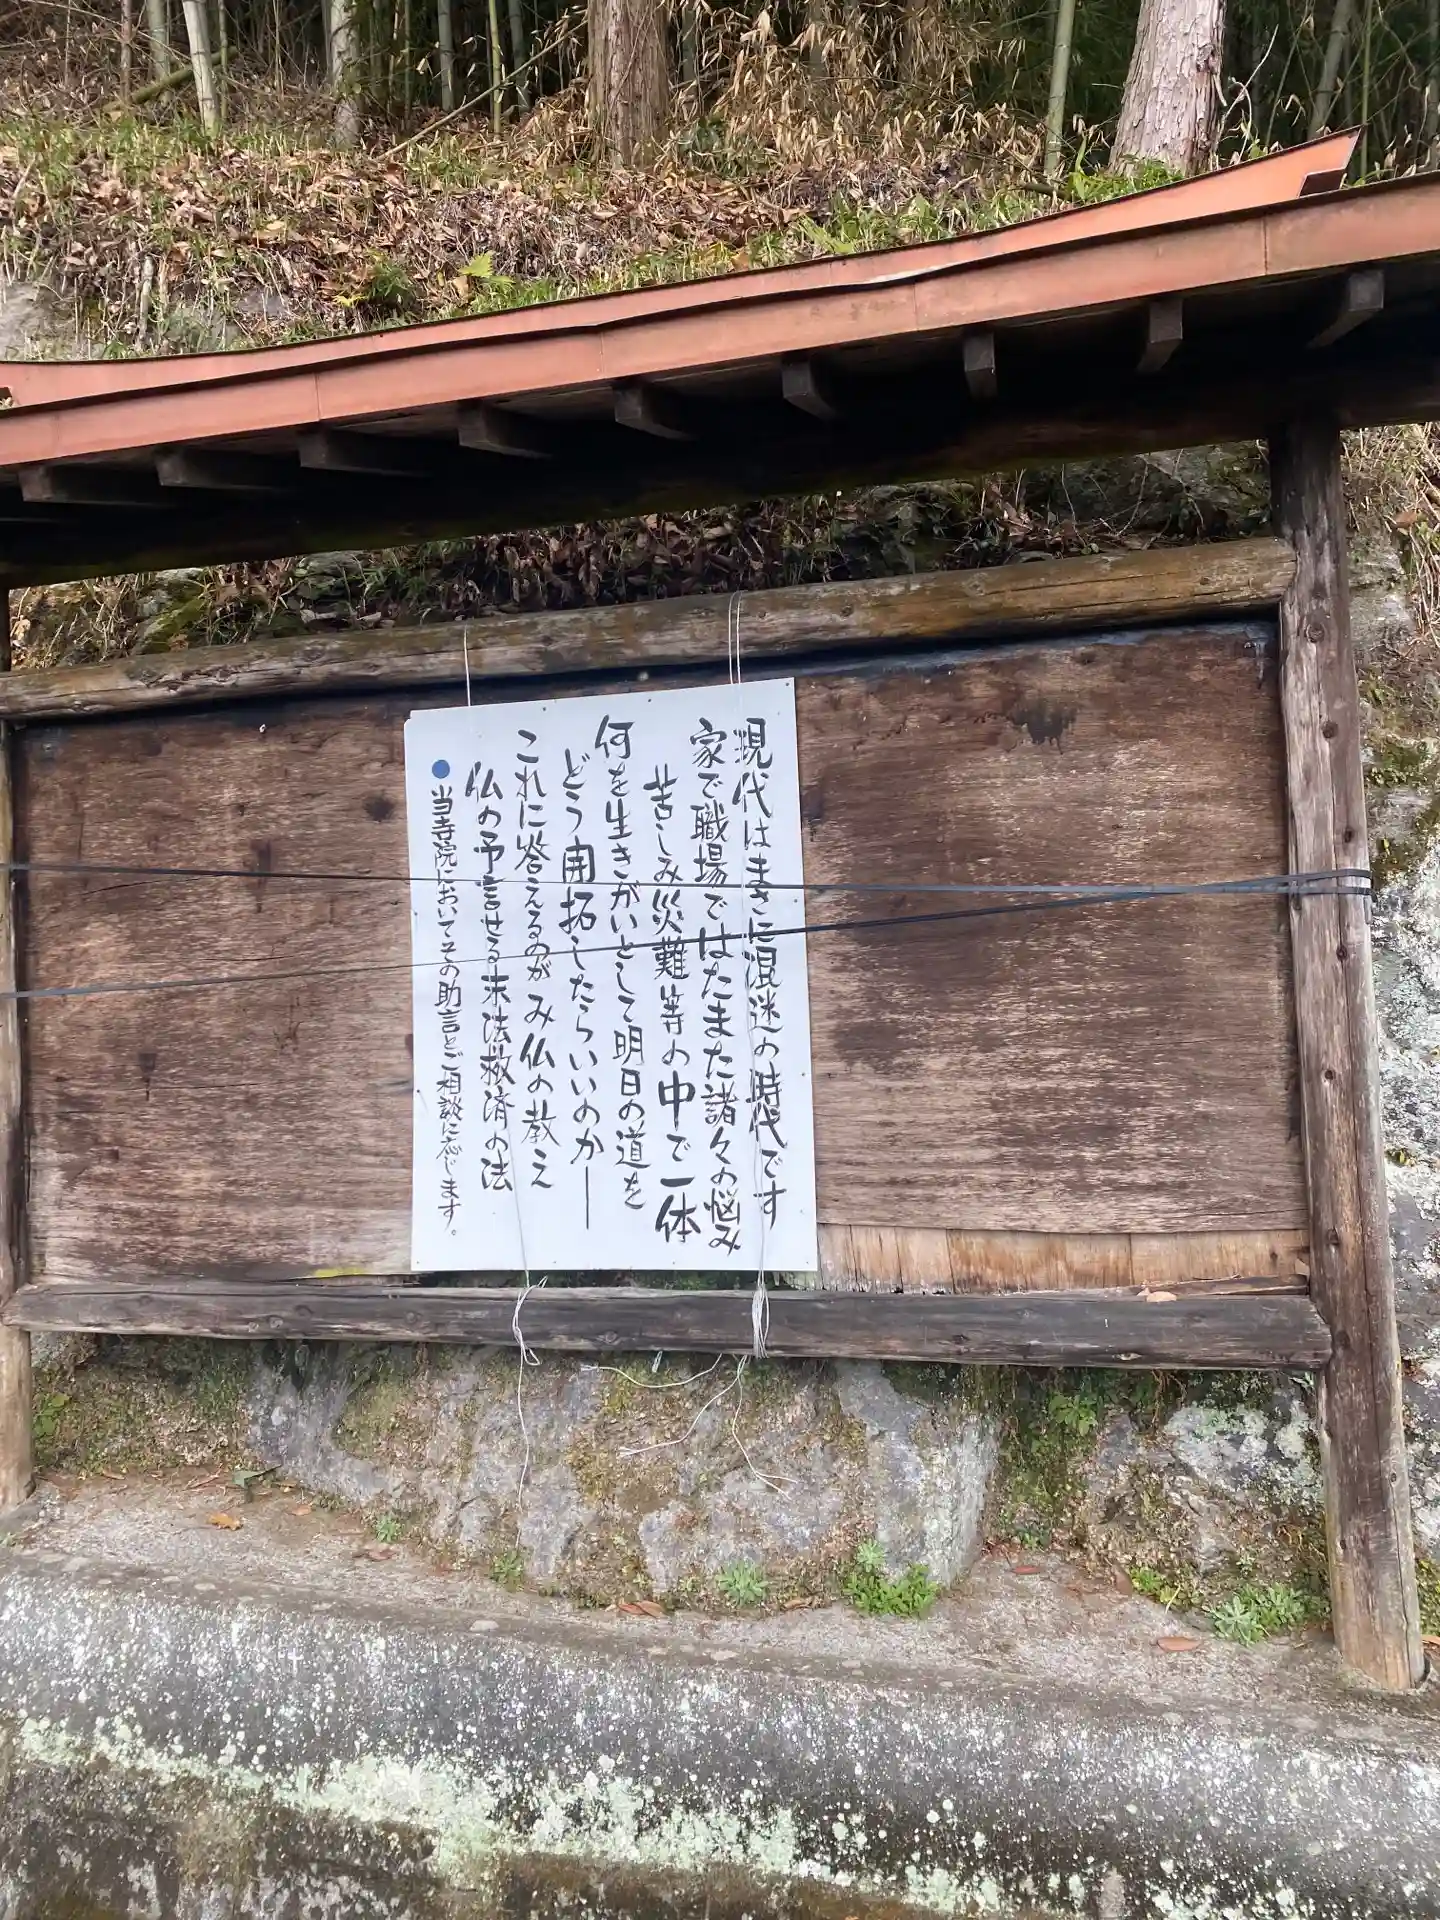 現代はまさに混迷の時代です
家で職場ではたまた諸々の悩み
苦しみ災難等の中で一体
何を生きがいとして明日の道を
どう開拓したらいいのか―
これに答えるのがみ仏の教え
仏の予言せる末法救済の法
●当寺院においてその助言とご相談に応じます。